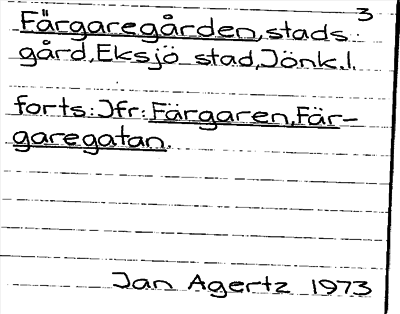 3
Färgaregården, stads-
gård, Eksjö stad, Jönk.l.
forts: Jfr: Färgaren, Fär-
garegatan.
Jan Agertz 1973